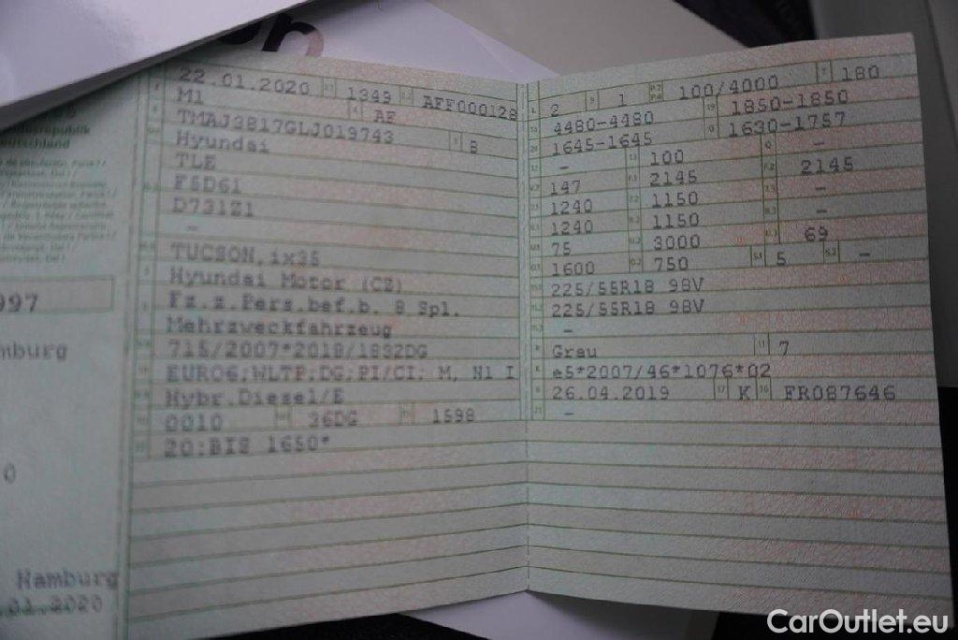 esrepublik
utschland
997
mburg
0
Hamburg
.01.2020
22.01.2020 1349 AFF000128
M1 AF
TMAJ3817GLJ019743 8
Hyundai
TLE
F5D61
D731Z1
-
TUCSON,ix35
Hyundai Motor (CZ)
Fz.z.Pers.bef.b. 8 Spl.
Mehrzweckfahrzeug
715/2007*2018/1832DG
EURO6;WLTP;DG;PI/CI: M, N1 I
Hybr.Diesel/E
0010 36DG 1598
20:BIS 1650*
2 1 100/4000 180
4480-4480 1850-1850
1645-1645 1630-1757
- 100 -
147 2145 2145
1240 1150 -
1240 1150 -
75 3000 69
1600 750 5 -
225/55R18 98V
225/55R18 98V
-
Grau 7
e5*2007/46*1076*02
26.04.2019 K FR087646
-
CarOutlet.eu